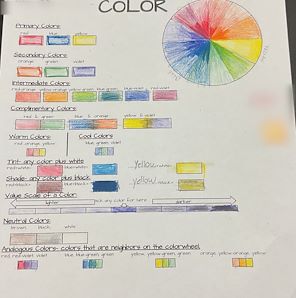 COLOR
Primary Colors:
red blue yellow
Secondary Colors:
orange green violet
Intermediate Colors:
red-orange yellow-orange yellow-green blue-green blue-violet red-violet
Complimentary Colors:
red & green blue & orange yellow & violet
Warm Colors: Cool Colors:
red orange yellow blue green violet
Tint- any color plus white
red+white= blue+white= yellow+white=
Shade- any color plus black
red+black= blue+black= yellow+black=
Value Scale of a Color
lighter pick any color for here darker
Neutral Colors:
brown black white
Analogous Colors- colors that are neighbors on the colorwheel
red, red-violet, violet blue, blue-green, green yellow, yellow-green, green orange, yellow-orange, yellow